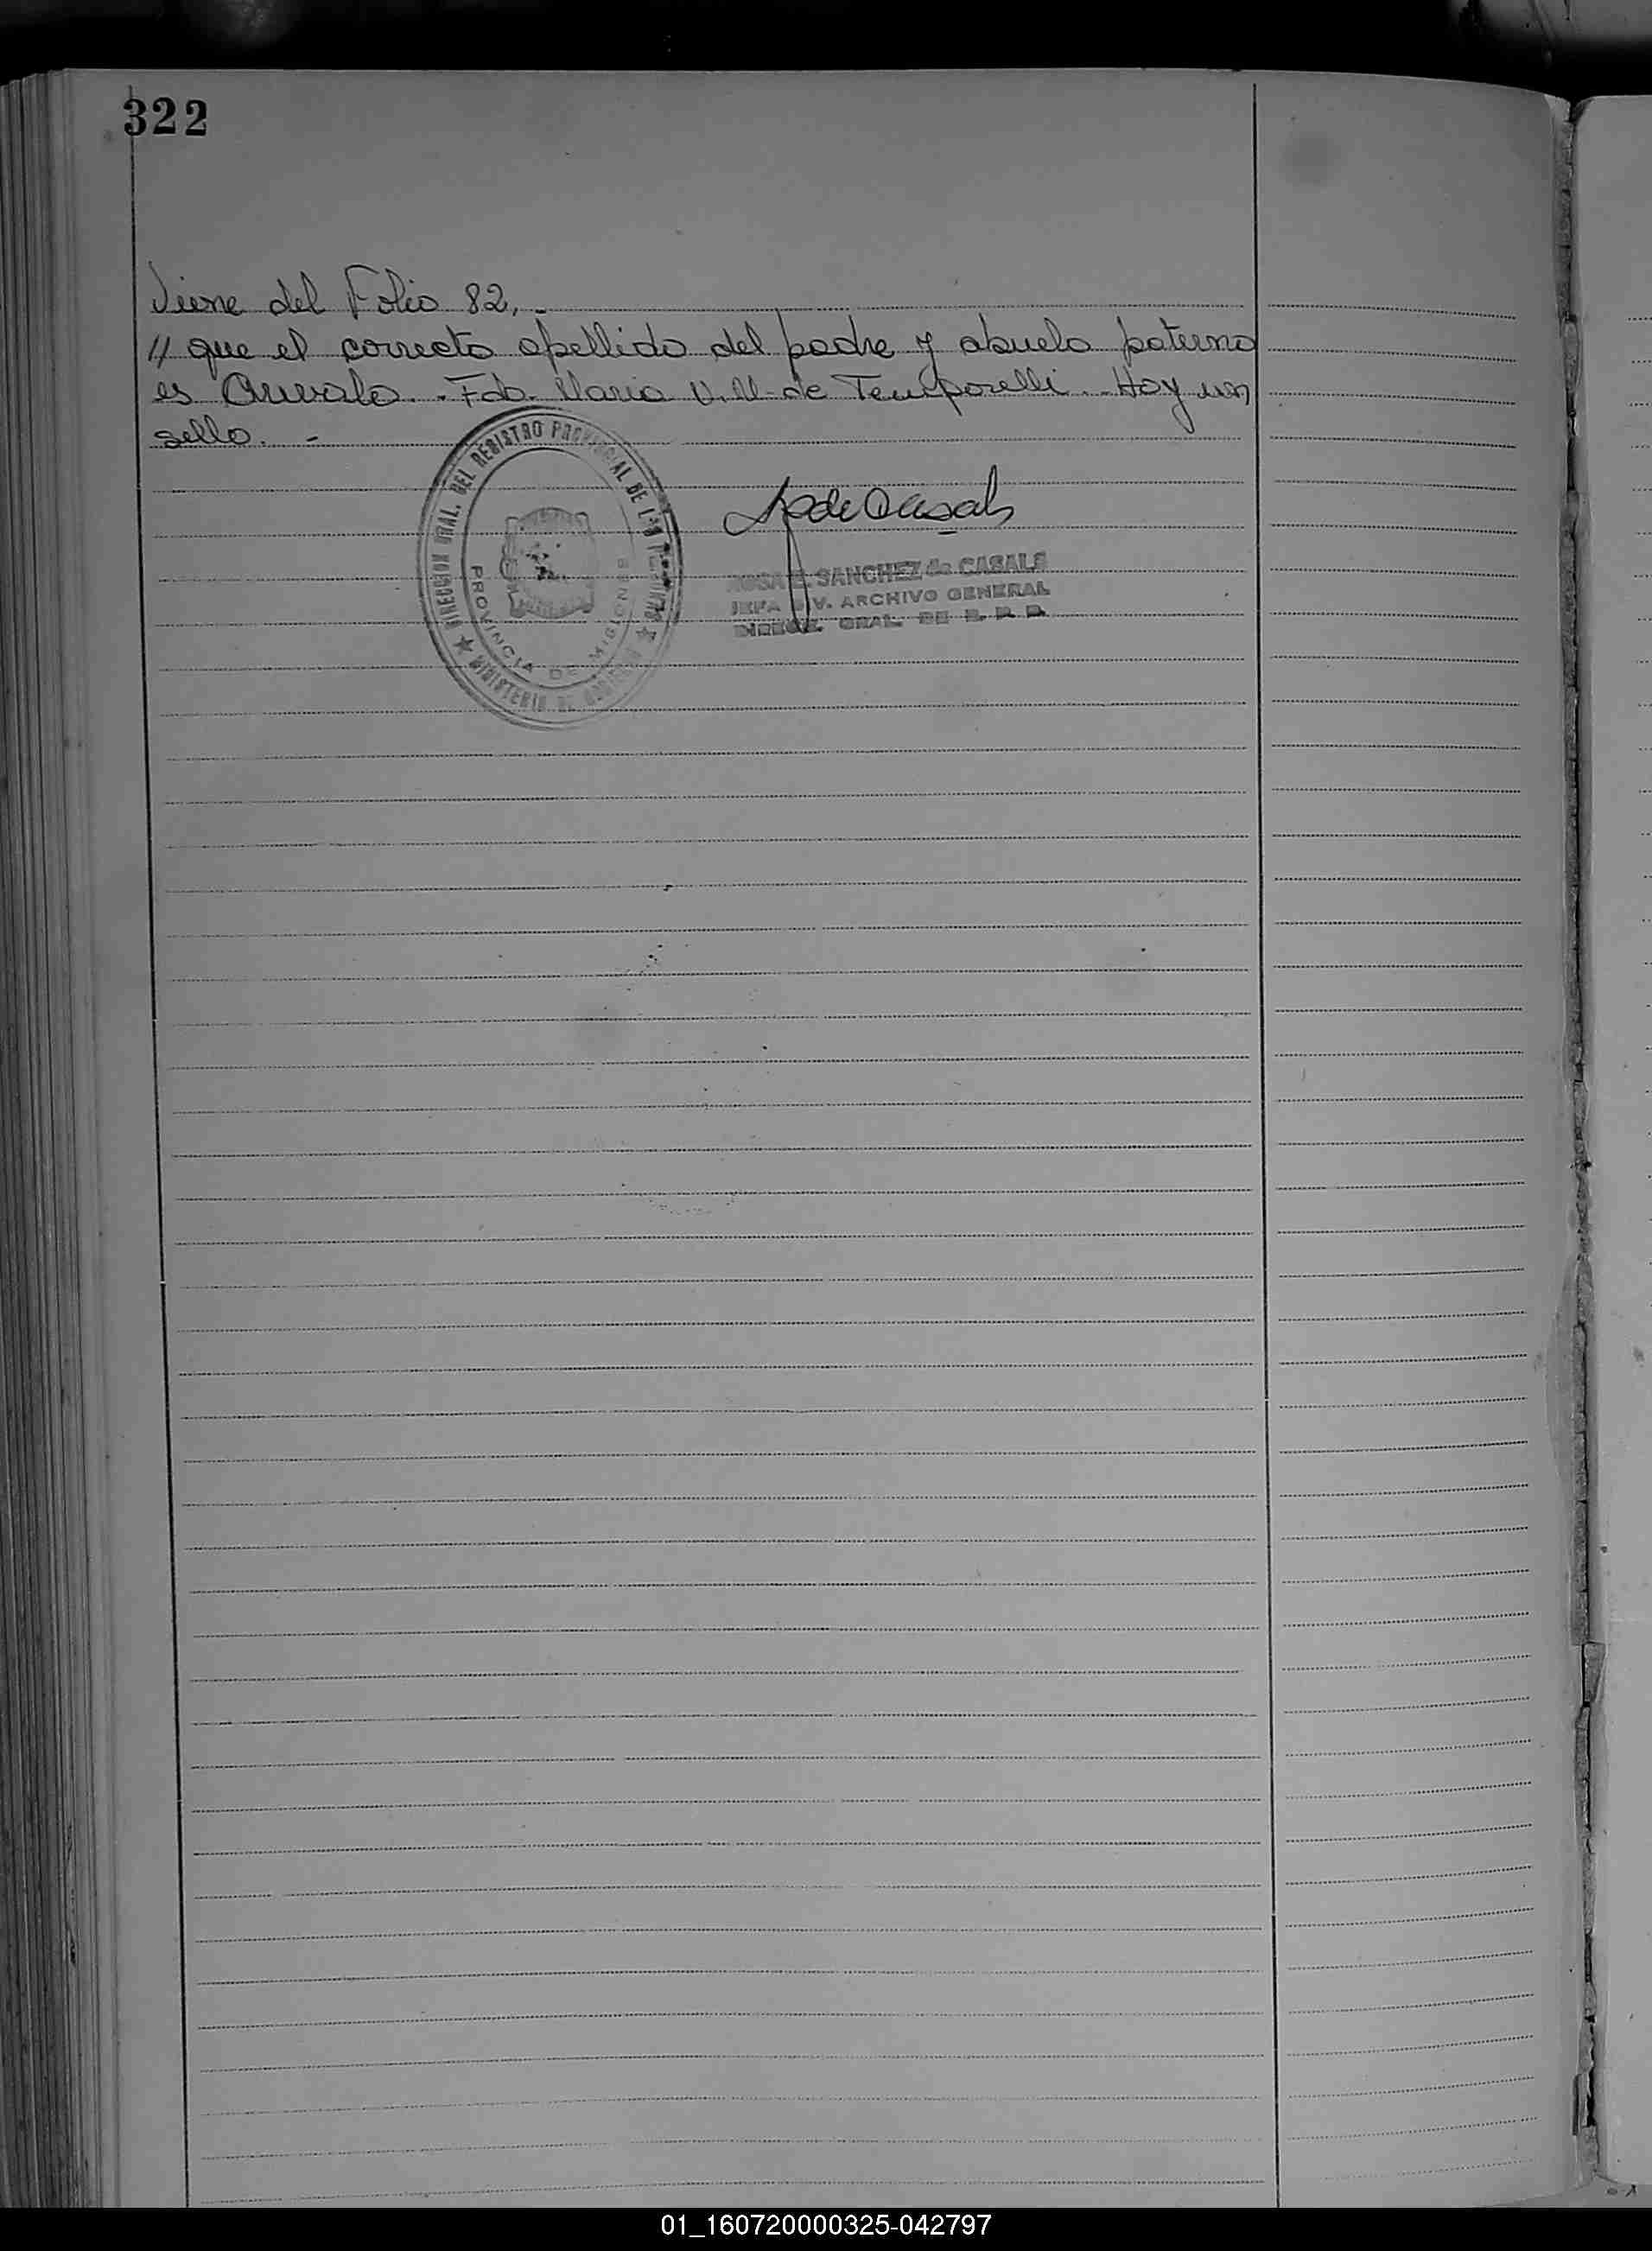 322
Viene del Folio 82.-
// que el correcto apellido del padre y abuelo paterno
es . - Fdo. Maria V. M. de Temporelli. - Hay un
sello. -
DIRECCION GRAL. DEL REGISTRO PROVINCIAL DE LAS PERSONAS
PROVINCIA DE MISIONES
MINISTERIO DE GOBIERNO
de Casals
ROSA SANCHEZ de CASALS
JEFA DIV. ARCHIVO GENERAL
DIRECC. GRAL. DE R. P. P.
01_160720000325-042797